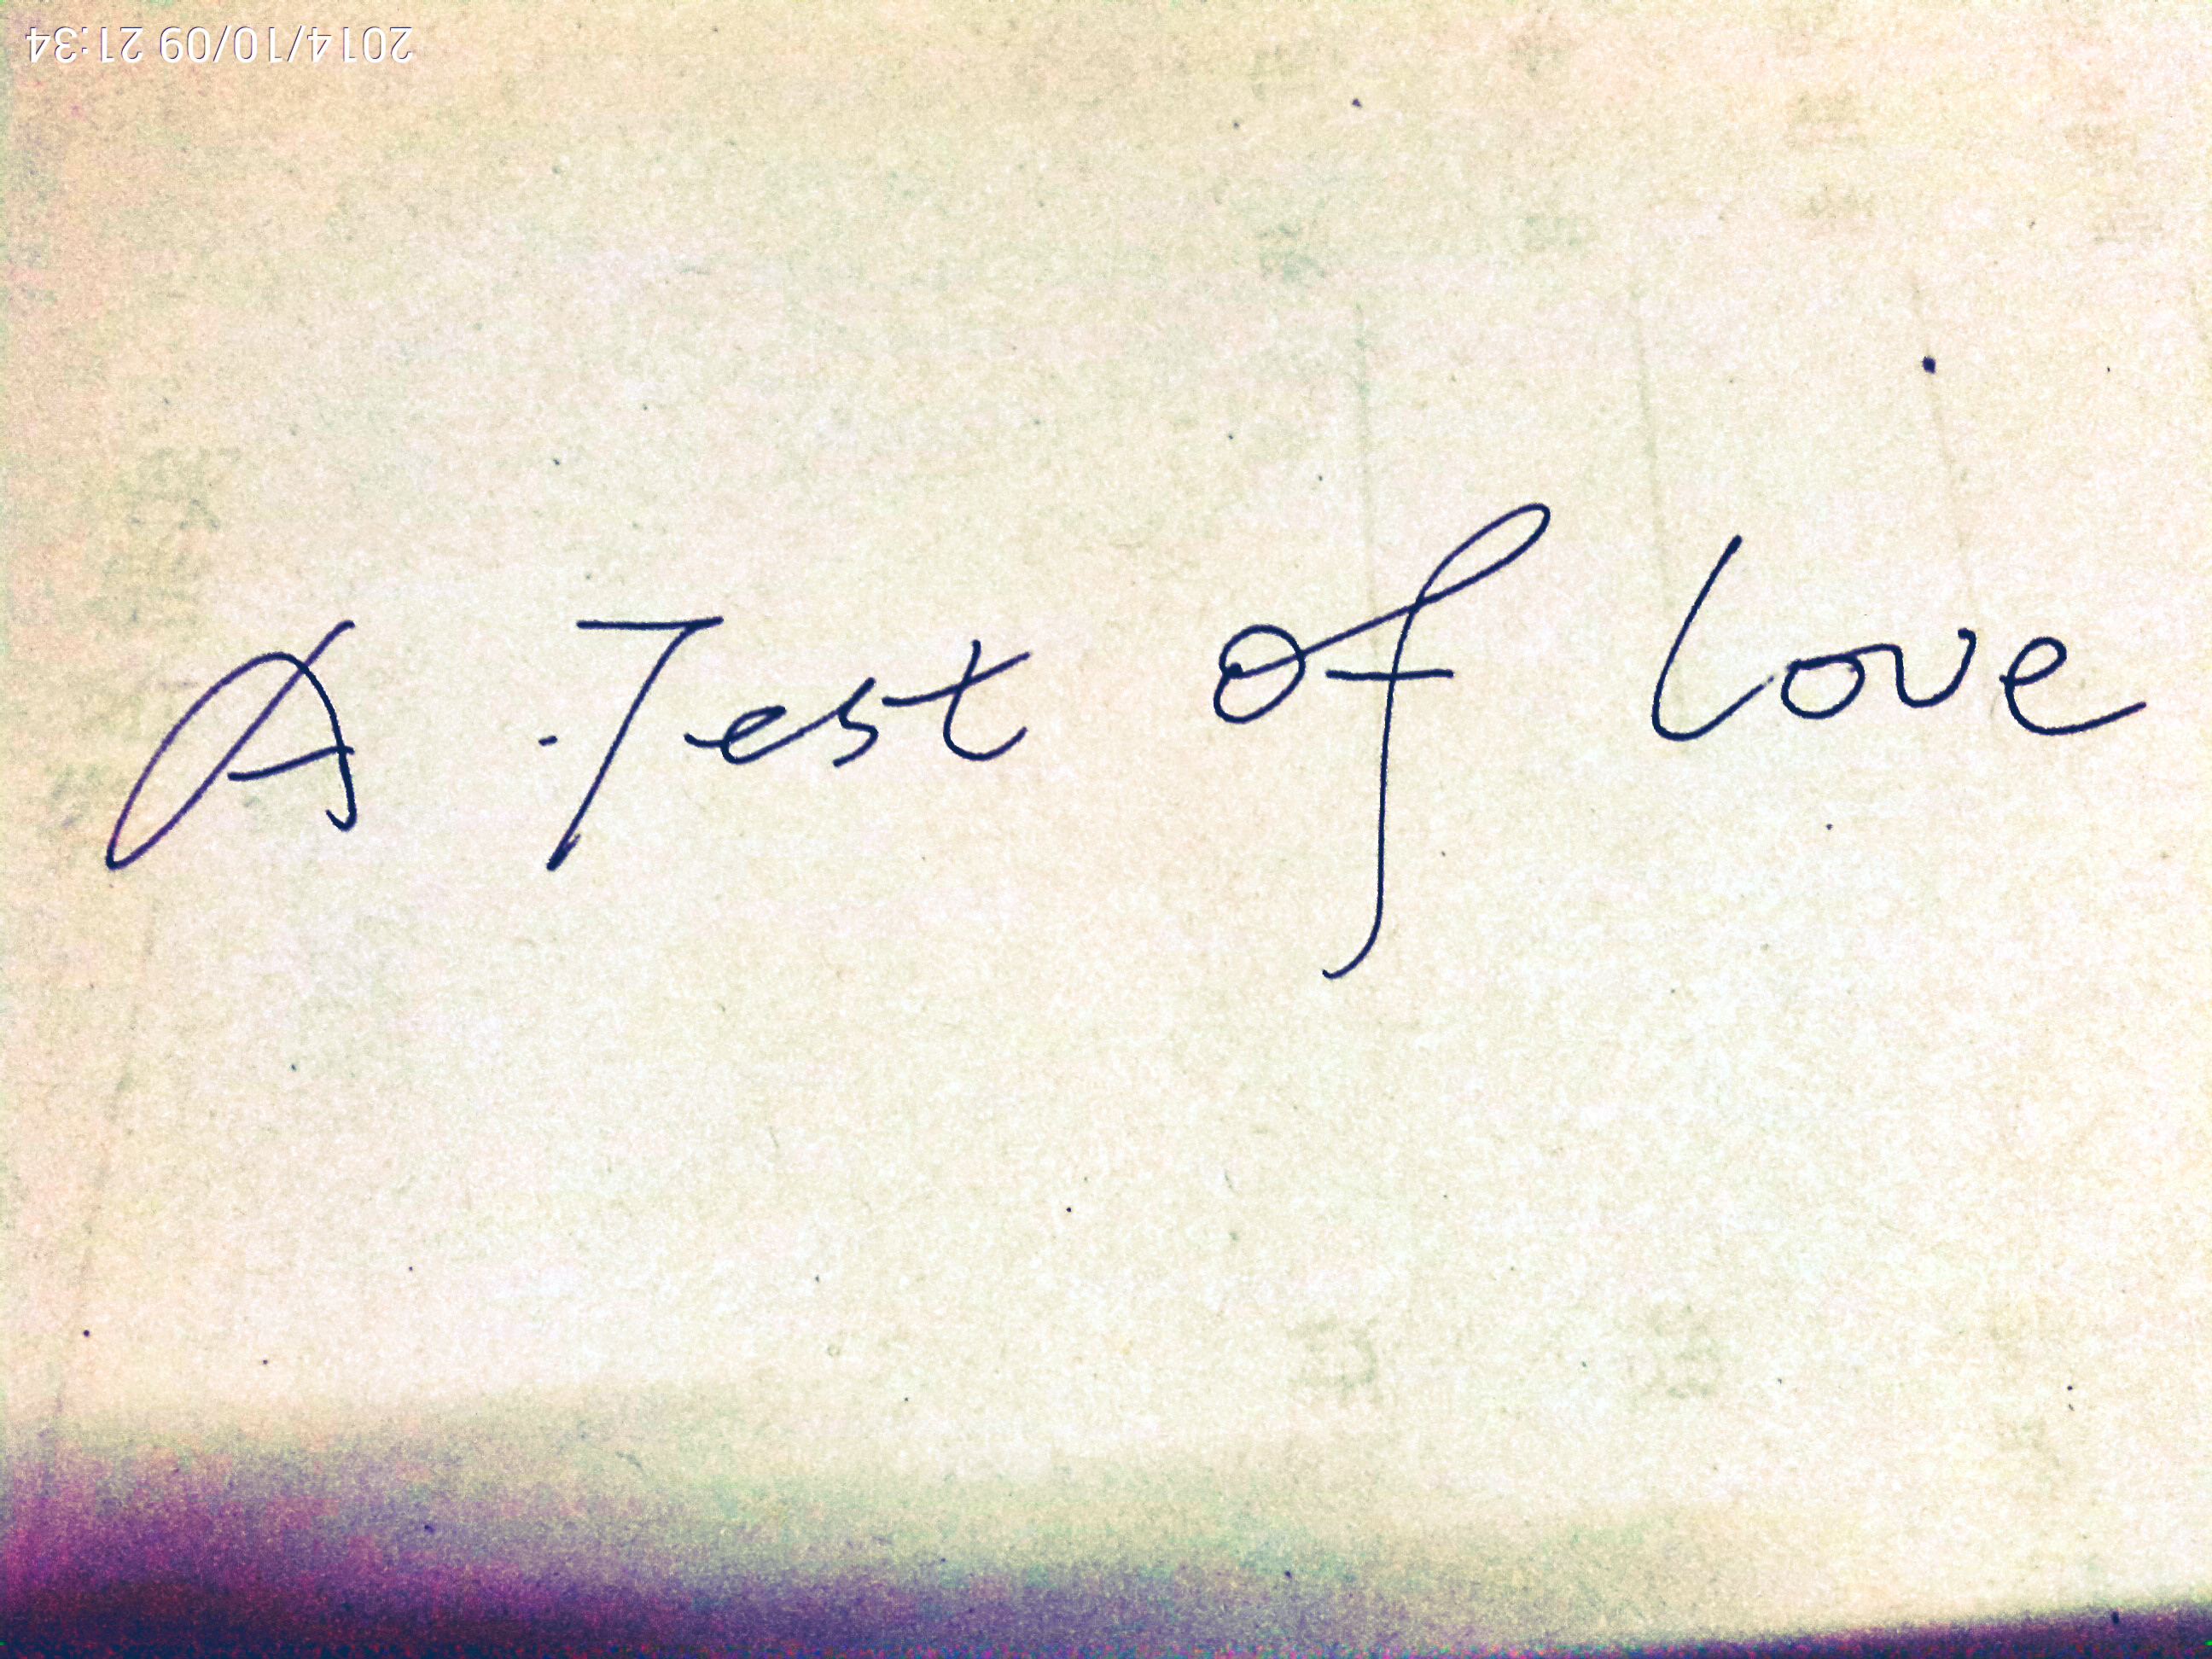 2014/10/09 21:34
A Test of love